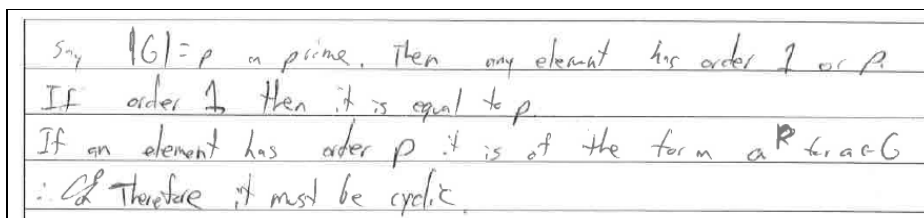 Say |G| = p a prime. Then any element has order 1 or p.
If order 1 then it is equal to p.
If an element has order p it is of the form a^k for a∈G
∴ Therefore it must be cyclic.